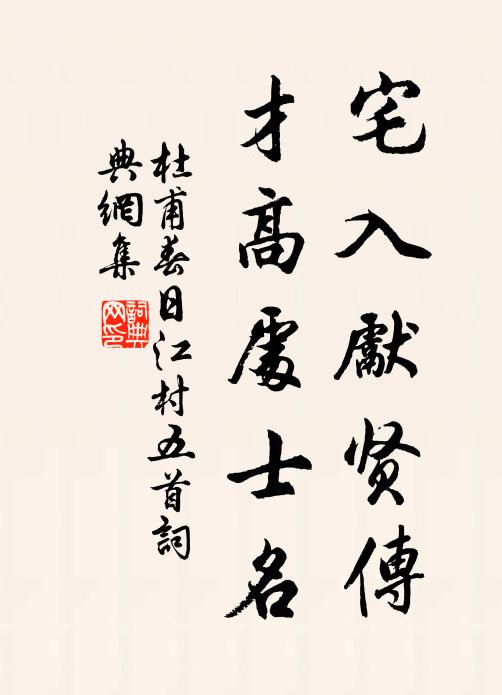 宅入獻贤傳
才高處士名
杜甫春日江村五首詞
典網集
詞典
网印